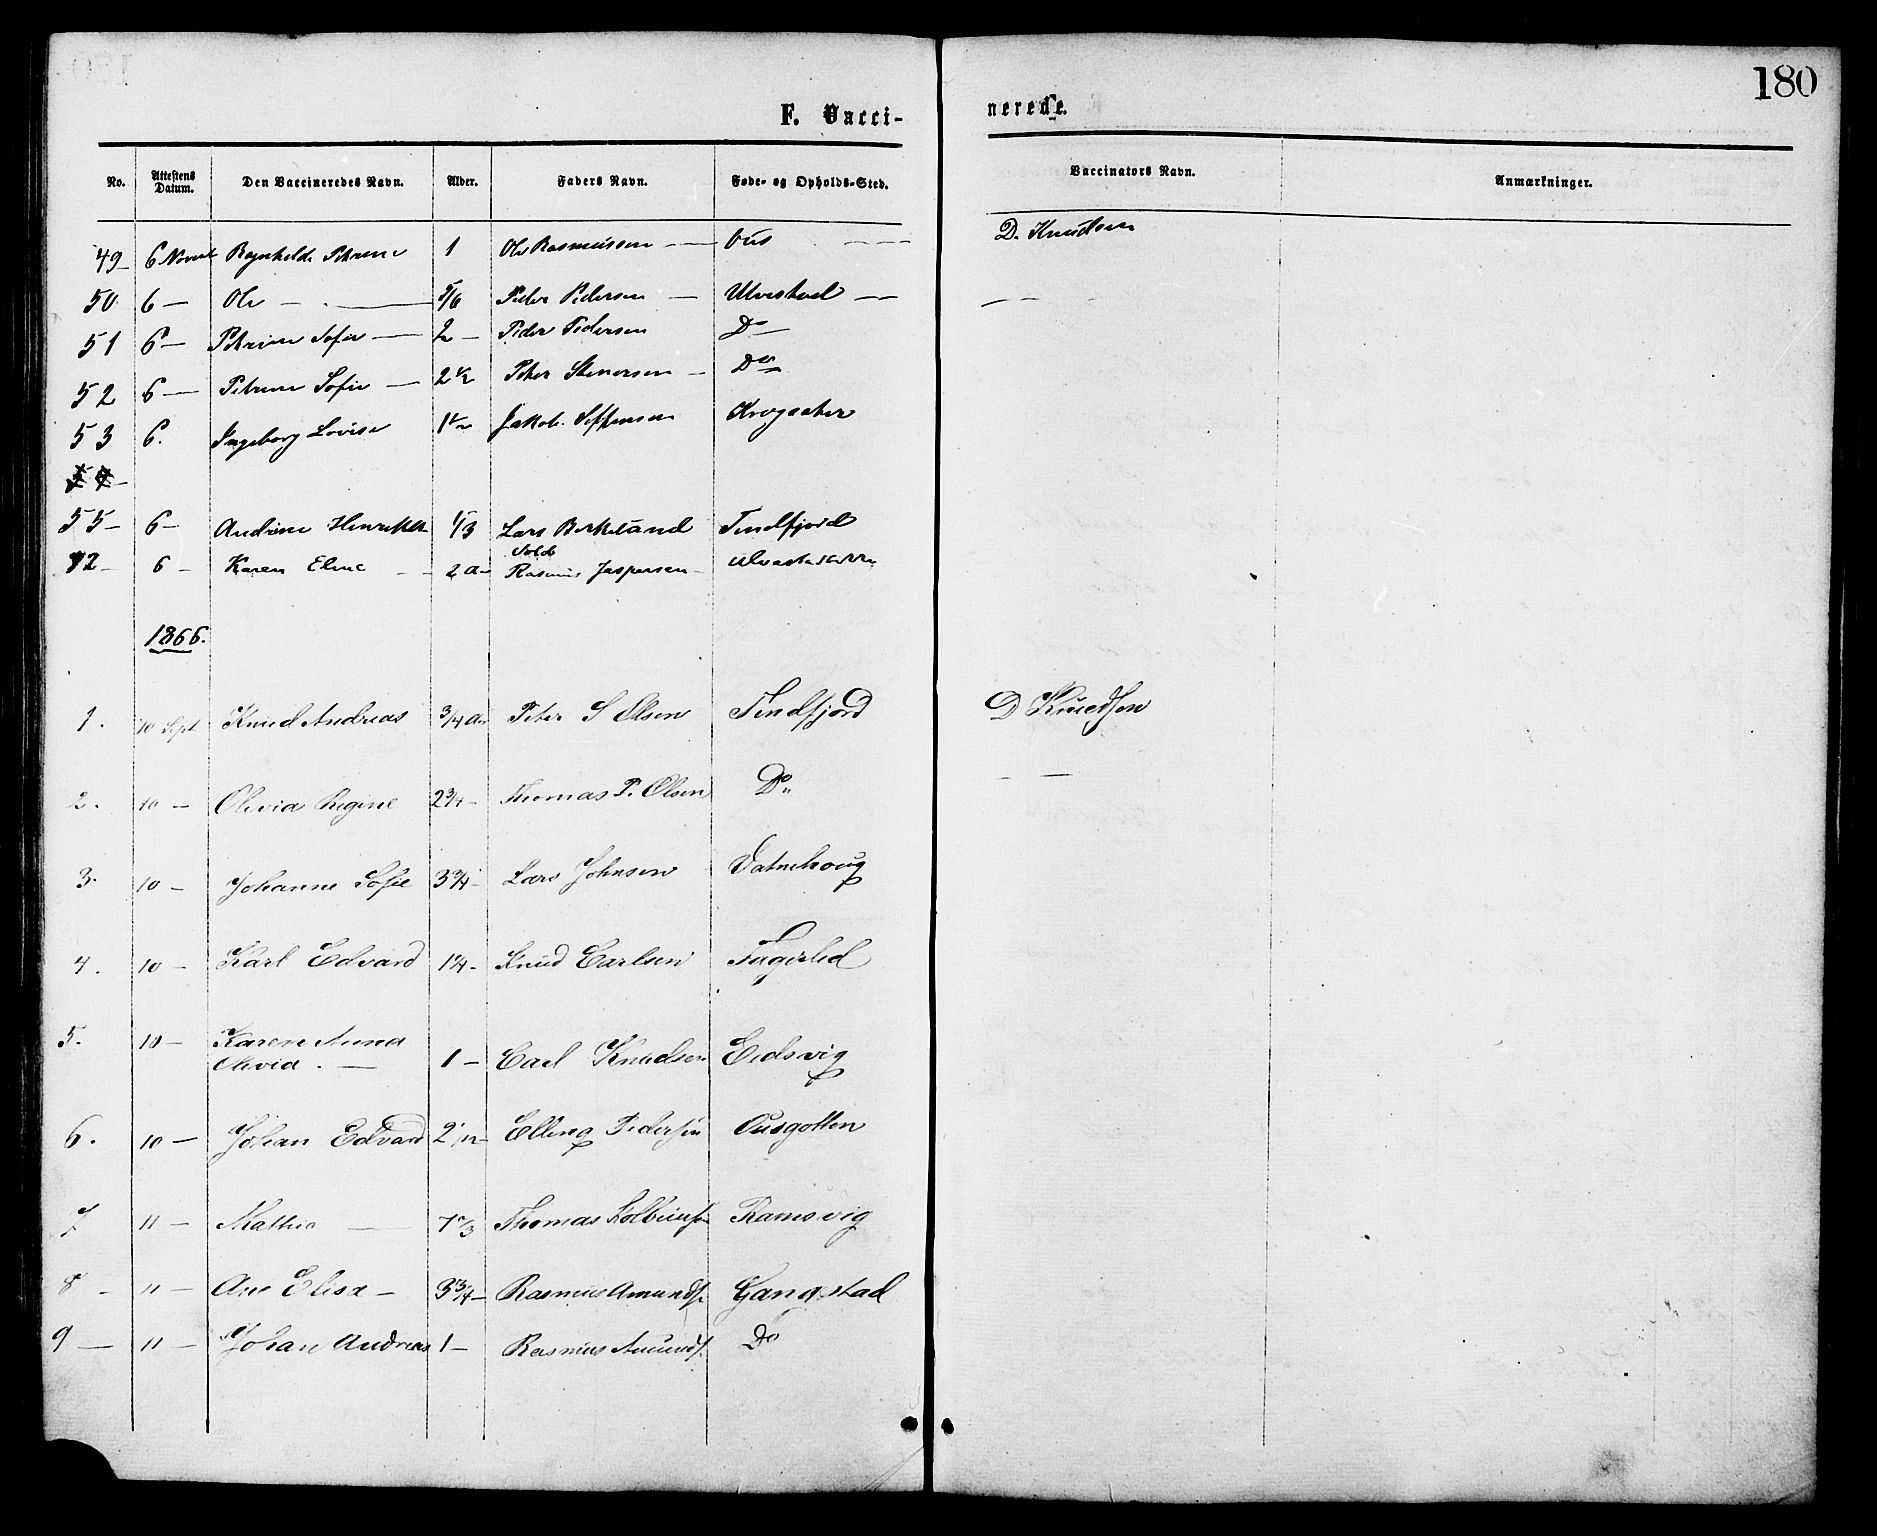 180
F. Vacci-nerede.
No. Attestens Datum. Den Vaccineredes Navn. Alder. Faders Navn. Føde- og Opholds-Sted. Vaccinators Navn. Anmærkninger.
49 6 Novbr Petrine 1 Ole Rasmussen — D. Knudsen
50 6 — Ole — 5/6 Peder Pedersen — Ulvestad —
51 6 — Petrine Sofie — 2 — Peder Pedersen Do
52 6 — Petrine Sofie — 2 1/2 Peter Stenersen — Do
53 6. Ingeborg Lovise Jakob
54 —
55 — 6 — Andrine 1/3 Lars Birkeland Tendfjord
72 — 6 — Karen Eline — 2 a — Sold. Rasmus Jespersen
1866.
1. 10 Sept Knud Andreas 3/4 aar Peter S Olsen Tendfjord D Knudsen
2. 10 — Olivia Regine 2 3/4 — Thomas P. Olsen Do
3. 10 — Johanne Sofie 3 3/4 — Lars Johnsen Vatnehoug
4. 10 — Karl Edvard 1 1/4 — Knud Carlsen
5. 10 — Karen Anna
Olivia. — 1 — Carl Knudsen Eidsvig
6. 10 — Johan Edvard 2 1/12 — Elling Pedersen
7 11 — Mathea — Thomas Ramsvig
8 — 11 — Ane Elisa — 3 3/4 — Rasmus Amunds. Gangstad
9 — 11 — Johan Andreas 1 — Rasmus Amunds. Do